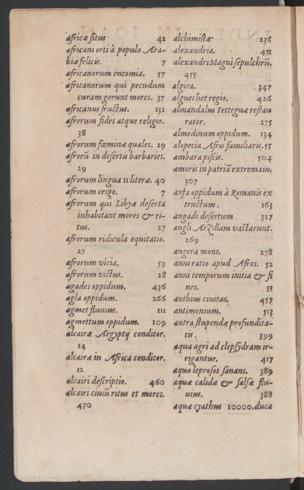 africæ situs 42
africani orti à populo Ara-
biæ felicis. 7
africanorum encomia. 57
africanorum qui pecudum
curam gerunt mores. 37
africanus fructus. 132
afrorum fides atque religio.
38
afrorum fœminæ quales. 29
afrorū in deserta barbaries.
29
afrorum lingua & literæ. 40
afrorum origo. 7
afrorum qui Libyæ deserta
inhabitant mores & ri-
tus. 27
afrorum ridicula equitatio.
27
afrorum vicia. 59
afrorum victus. 28
agades oppidum. 436
agla oppidum. 266
agmet fluuius. 111
agmettum oppidum. 109
alcairæ Aegypti conditor.
14
alcairæ in Africa conditor.
12
alcairi descriptio. 460
alcairi ciuiū ritus et mores.
470
alchimistæ 236
alexandria. 451
alexandri Magni sepulchrū.
455
algira. 347
alguechet regio. 426
almandalus Tettegnæ restau
rator. 275
almedinum oppidum. 134
alopecia Afris familiaris. 55
ambara piscis. 504
amoris in patriā extremam.
307
anfa oppidum à Romanis ex
tructum. 163
angadi desertum 327
angli Arzillam vastarunt.
269
angera mons. 278
anni ratio apud Afros. 52
anni temporum initia & fi
nes. 51
anthus ciuitas. 457
antimonium. 513
antra stupendæ profundita-
tis. 399
aqua agri ad clepsydram ir-
rigantur. 417
aqua leprosos sanans. 389
aquæ calidæ & salsæ flu-
uius. 388
aquæ cyathus 10000. duca